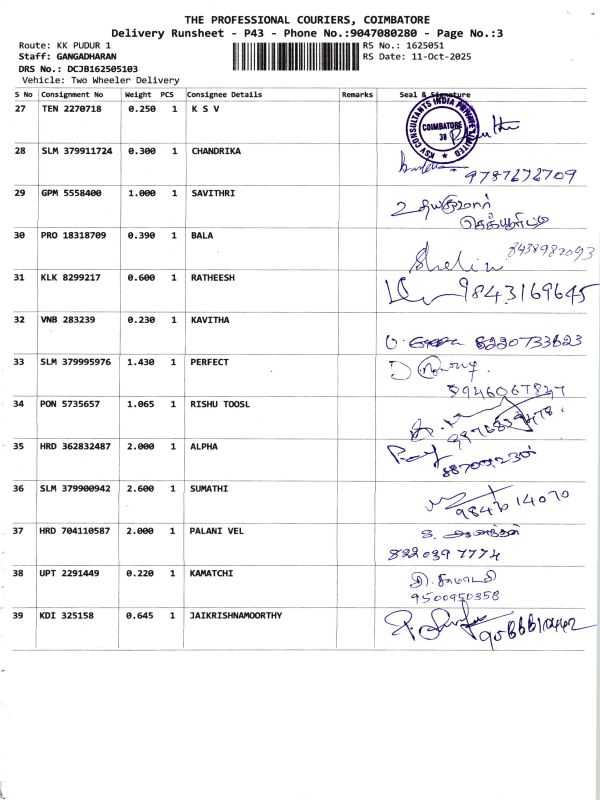 THE PROFESSIONAL COURIERS, COIMBATORE
Delivery Runsheet - P43 - Phone No.:9047080280 - Page No.:3
Route: KK PUDUR 1
RS No.: 1625051
Staff: GANGADHARAN
RS Date: 11-Oct-2025
DRS No.: DCJB162505103
Vehicle: Two Wheeler Delivery
S No Consignment No Weight PCS Consignee Details Remarks Seal & Signature
27 TEN 2270718 0.250 1 K S V
KSV CONSULTANTS INDIA PRIVATE LIMITED
COIMBATORE
38
28 SLM 379911724 0.300 1 CHANDRIKA
9787272709
29 GPM 5558400 1.000 1 SAVITHRI
உதயகுமார்
30 PRO 18318709 0.390 1 BALA
8438982093
31 KLK 8299217 0.600 1 RATHEESH
9843169645
32 VNB 283239 0.230 1 KAVITHA
8220733623
33 SLM 379995976 1.430 1 PERFECT
34 PON 5735657 1.065 1 RISHU TOOSL
35 HRD 362832487 2.000 1 ALPHA
36 SLM 379900942 2.600 1 SUMATHI
37 HRD 704110587 2.000 1 PALANI VEL
8220397774
38 UPT 2291449 0.220 1 KAMATCHI
9500950358
39 KDI 325158 0.645 1 JAIKRISHNAMOORTHY